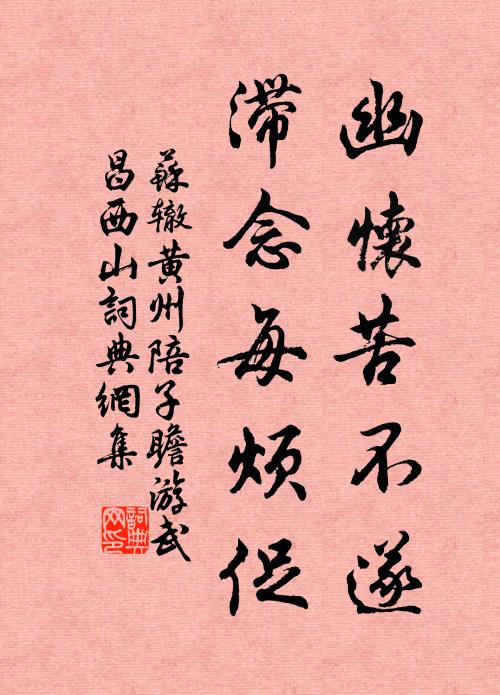 幽懷苦不遂
滯念每煩促
蘇辙黄州陪子瞻游武
昌西山詞典網集
詞典网印